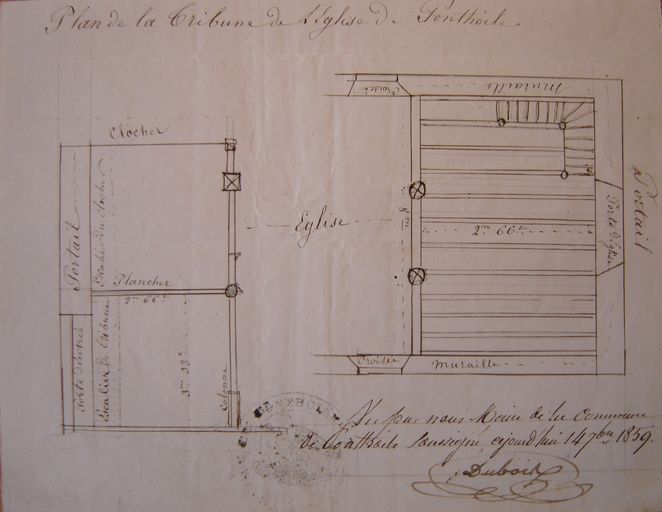 Plan de la Tribune de L'Eglise de Ponthoile.
Clocher
Portail
Escalier du clocher
Plancher
2m 66c
Porte d'entrée
Escalier de Tribune
3m 33c
Colonne
Eglise
Croisée
muraille
8m
2m 66c
Porte d'Eglise
Portail
Croisée
muraille
PONTHOILE
Vu par nous Maire de la Commune
de Ponthoile soussigné aujourd'hui 14 7bre 1859.
Dubois